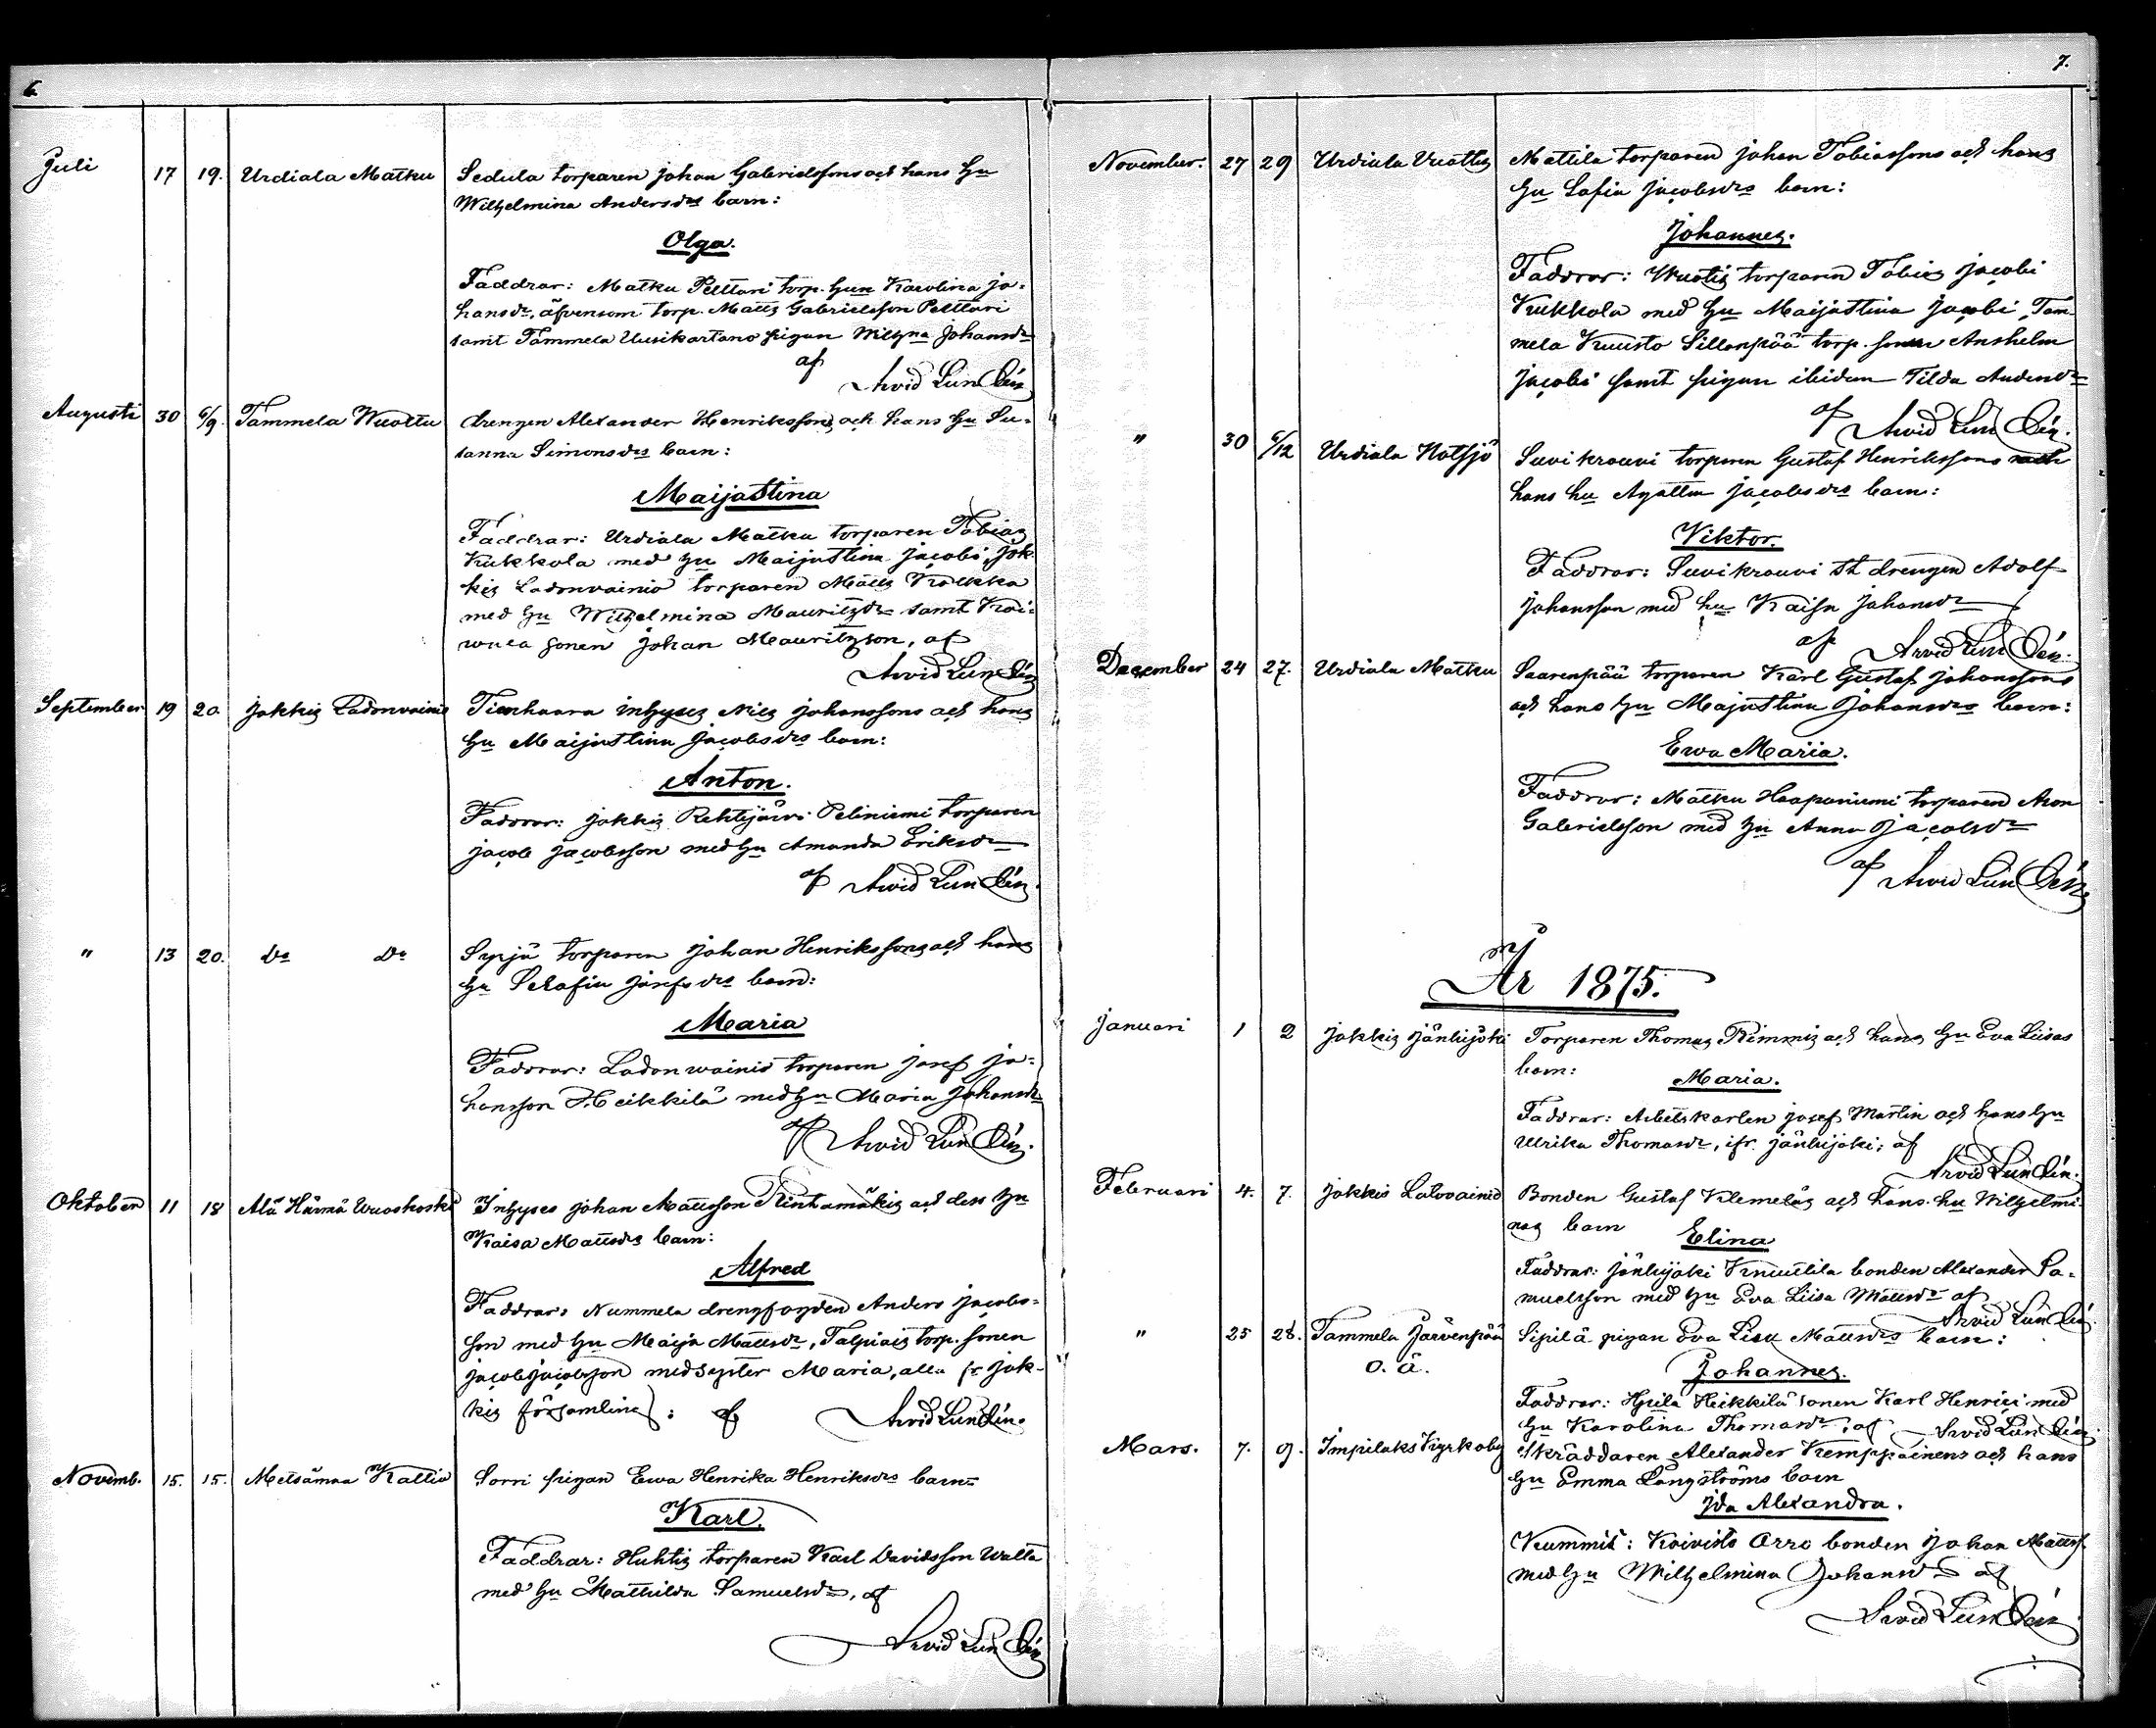 6.
Juli 17 19. Urdiala Matku Sedula torparen Johan Gabrielssons och hans Hu
Wilhelmina Andersdrs barn:
Olga.
Faddrar: Matku Pelttari torp. hun Karolina Jo-
hansdr, äfvensom torp. Matts Gabrielsson Pelttari
samt Tammela Uusikartano pigan Wilhna Johansdr
af
Arvid Lundén
Augusti 30 6/9. Tammela Wuoltu drengen Alexander Henrikssons och hans Hu Su-
sanna Simonsdrs barn:
Maijastina
Faddrar: Urdiala Matku torparen Tobias
Kukkola med Hu Maijastina Jacobi, Jok-
kis Ladonvainio torparen Matts Krekka
med Hu Wilhelmina Mauritzdr samt Koi-
sonen Johan Mauritzson, af
Arvid Lundén
September 19 20. Jokkis Ladonvainio Tienhaara inhyses Nils Johanssons och hans
Hu Maijastina Jacobsdrs barn:
Anton.
Faddrar: Jokkis Rehtijärvi Peliniemi torparen
Jacob Jacobsson med Hu Amanda Eriksdr
af Arvid Lundén.
" 13 20. Do Do Syrjä torparen Johan Henrikssons och hans
Hu Serafia Josefsdrs barn:
Maria
Faddrar: Ladonwainio torparen Josef Jo-
hansson Heikkilä med Hu Maria Johansdr
af Arvid Lundén.
Oktober 11 18 Alä Härmä Wuoskoski Inhyses Johan Mattsson Rintamäkis och dess Hu
Kaisa Mattsdrs barn:
Alfred
Faddrar: Nummela drengfogden Anders Jacobs-
son med Hu Maija Mattsdr, Talpiais torp. sonen
Jacob Jacobsson med syster Maria, alla fr Jok-
kis församling: af Arvid Lundén.
Novemb. 15. 15. Metsämaa Kallio Sorri pigan Ewa Henrika Henriksdrs barn
Karl.
Faddrar: Huhtis torparen Karl Davidsson Walta
med Hu Mathilda Samuelsdr, af
Arvid Lundén
7.
November. 27 29 Urdiala Mattila torparen Johan Tobiassons och hans
Hu Sofia Jacobsdrs barn:
Johannes.
Faddrar: torparen Tobias Jacobi
Kukkola med Hu Maijastina Jacobi, Tam-
mela Kuusto Sillanpää torp. sonen Anshelm
Jacobi samt pigan ibidem Tilda Andersdr
af Arvid Lundén.
" 30 6/12 Urdiala Notsjö Suvikrouvi torparen Gustaf Henrikssons och
hans hu Agatha Jacobsdrs barn:
Viktor.
Faddrar: Suvikrouvi st drengen Adolf
Johansson med hu Kaisa Johansdr
af Arvid Lundén.
December 24 27. Urdiala Matku Saarenpää torparen Karl Gustaf Johanssons
och hans Hu Majastina Johansdrs barn:
Ewa Maria.
Faddrar: Matku Haapaniemi torparen Aron
Gabrielsson med Hu Anna Jacobsdr
af Arvid Lundén
År 1875.
Januari 1 2 Jokkis Jänhijoki Torparen Thomas Rimmis och hans Hu Eva Liisas
barn:
Maria.
Faddrar: Arbetskarlen Josef Martin och hans Hu
Ulrika Thomasdr, ifr. Jänhijoki; af
Arvid Lundén.
Februari 4. 7. Jokkis Latovainio Bonden Gustaf Klemeläs och hans hu Wilhelmi-
nas barn
Elina
Faddrar: Jänhijoki Knuutila bonden Alexander Sa-
muelsson med Hu Eva Liisa Mattsdr af
Arvid Lundén.
" 25 28. Tammela Järvenpää Sipilä pigan Eva Lisu Mattsdrs barn:
o. ä.
Johannes.
Faddrar: Heikkilä sonen Karl Henrici med
Hu Karolina Thomasdr; af Arvid Lundén
Mars. 7. 9. Impilaks Kyrkoby Skräddaren Alexander Kemppainens och hans
Hu Emma Långströms barn
Ida Alexandra.
Kummit: Koivisto Arro bonden Johan Mattss.
med Hu Wilhelmina Johansdr af
Arvid Lundén